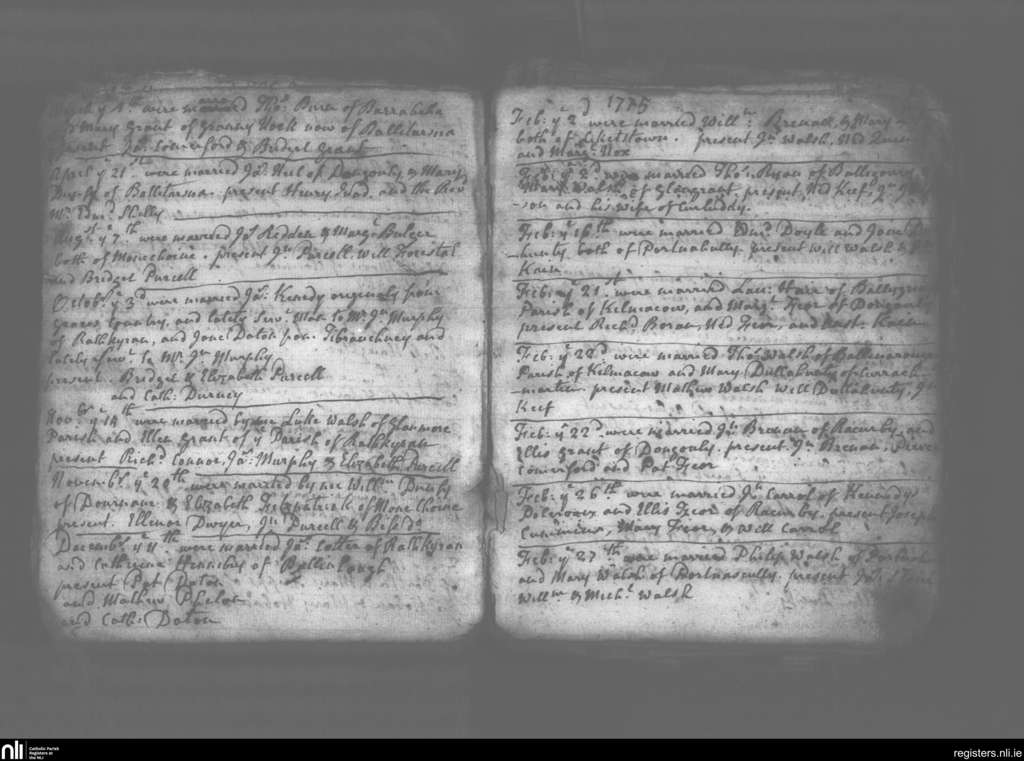 y 4th were married Thos. Buren of Barrabeha
& Mary Grant of Granny Hook now of Balletarsna
present Jas. Comerford & Bridget Grant
April ye 21st were married Jas. Neil of Dungooly & Mary
Dunfy of Balletarsna. present Henry Wad. and the Rev.
Mr. Edm. Shelly
Augst. ye 7th were married Jas. Redden & Margt. Bulger
both of Monechorne. present Jn. Purcell, Will Forestal
and Bridget Purcell
Octobr. ye 3d were married Jas. Kenedy originely from
Graces Country, and lately Servt. Man to Mr. Jn. Murphy
of Rathkyran, and Jone Daton from Tibraughney and
lately servt. to Mr. Jn. Murphy
present. Bridget & Elizabeth Purcell
and Cath: Durney
Novbr. ye 14th were married by me Luke Walsh of Glanmore
Parish and Ellen Grant of ye Parish of Rathkyran
present Richd. Connor, Jas. Murphy & Elizabeth Purcell
Novembr. ye 20th were married by me Willm. Dunfy
of Dournane & Elizabeth Fitzpatrick of Monechorne
present. Ellenor Dwyer, Jn. Purcell &
Decembr. ye 11th were married Jas. Cotter of Rathkyran
and Catherine Hennebry of Ballinlough
present Pat Daton
and Mathew Phelan
and Cath: Daton
1775
Feb: ye 2d were married Willm. Brenan, & Mary
both of Licketstown. present Jn. Walsh, Ned
and Margt. Nox
Feb: ye 2d were married Thos. Ryan of Ballygouny
Mary Walsh of Glengrant, present Ned Keef, Jn.
son and his wife of Curluddy.
Feb: ye 16th were married Edm. Doyle and Joan
both of Portnabully. present Will Walsh &
Knox
Feb: ye 21st were married Lau: Hare of
Parish of Kilmacow, and Margt. Fcor of Dungooly
present Richd. Boran, Ned Fcor, and
Feb: ye 22d were married Thos. Walsh of
Parish of Kilmacow and Mary Dullahunty of Currach
marten. present Mathew Walsh Will Dullahunty, Jn.
Keef
Feb: ye 22d were married Jn. Brenan of Racurby, and
Ellis Grant of Dungooly. present Jn. Brenan,
Comerford and Pat Fcor
Feb: ye 26th were married Jn. Carrol of Kennedy
and Ellis Fcor of Racurby, present Joseph
Cummins, Mary Fcor, & Will Carrol
Feb: ye 27th were married Philip Walsh of
and Mary Walsh of Portnascully. present
Willm. & Michl. Walsh
nli
Catholic Parish
Registers at
the NLI
registers.nli.ie